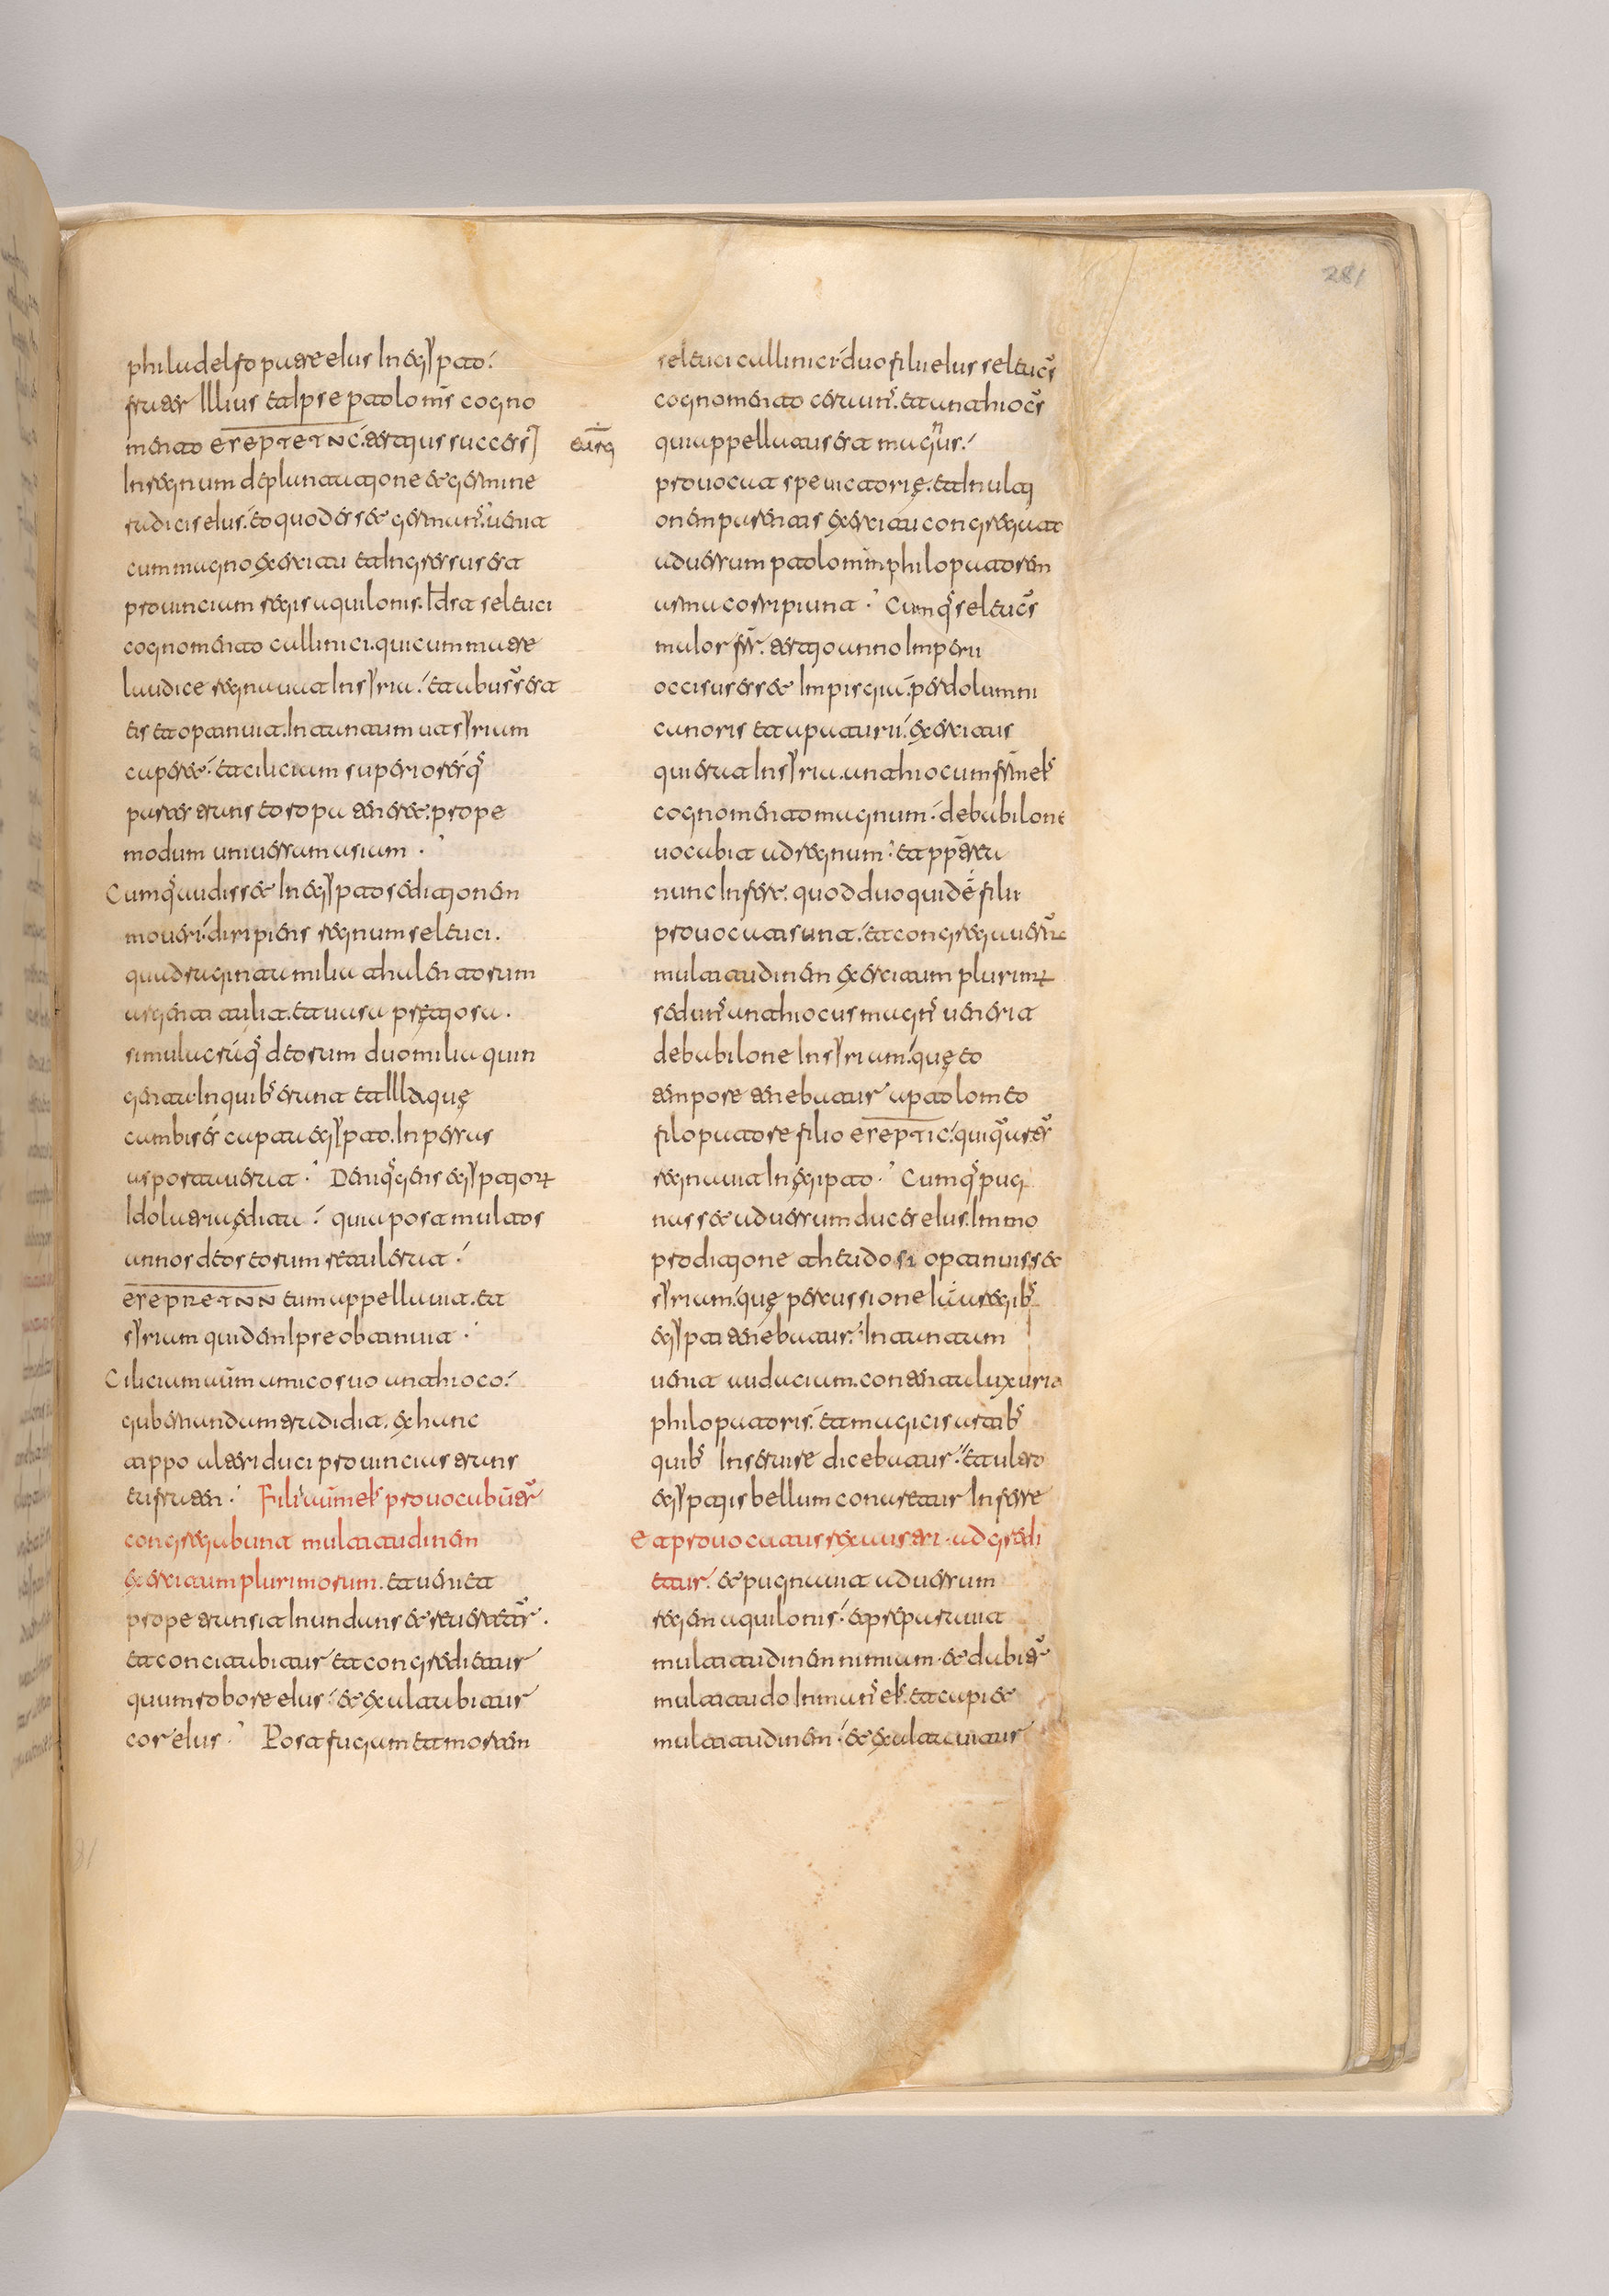 philadelfo patre eius In egypto.
frater Illius et Ipse ptolomeus cogno
mento
tertius successit
In regnum de plantatione et germine
radicis eius. eo quod esset germanus. uenit
cum magno exercitu et Ingressus est
prouinciam regis aquilonis. Id est seleuci
cognomento callinici. qui cum matre
laudice regnauat In syria. et abusus est
eis et optinuit. In tantum ut syriam
caperet. et ciliciam superioresq
partes trans
prope
modum uniuersam asiam.
Cumq audisset In egypto seditionem
moueri. diripiens regnum seleuci.
quadraginta milia thalentorum
argenti tulit. et uasa pretiosa.
simulacraq deorum duo milia quin
genta. In quib erant et Illa que
cambises capta egypto. In persas
asportauerat. Deniq gens egyptiorum
Idolatrie dedita. quia post multos
annos deos eorum retulerat.
eum appellauit. et
syriam quidem Ipse obtinuit.
Ciliciam autem amico suo anthioco.
gubernandam tradidit. et hanc
tippo alteri duci prouincias trans
eufraten. Filii autem eius prouocabuntur
congregabunt multitudinem
exercituum plurimorum. et ueniet
properans et Inundans et reuertetur.
et concitabitur et congredietur
cum robore eius. et exaltabitur
cor eius. Post fugam et mortem
seleuci callinici. duo filii eius seleucus
cognomento ceraunus. et anthiocus
qui appellatus est magnus.
prouocati spe uictorie. et In ulti
onem parentis exercitu congregato
aduersum ptolomeum philopatorem
arma corripiunt. Cumq seleucus
maior frater. tertio anno Imperii
occisus esset In frigia. per dolum ni
canoris et apaturii. exercitus
qui erat In syria. anthiocum fratrem eius
cognomento magnum. de babilone
uocabit ad regnum. et propterea
nunc Infert. quod duo quidem filii
prouocati sunt. et congregauerunt
multitudinem exercituum plurimorum
sed unus anthiocus magnus uenerit
de babilone In syriam. que eo
tempore tenebatur a ptolomeo
filopatore filio
qui quartus
regnauit In egipto. Cumq pug
nasset aduersum duces eius. Immo
proditione theudosi optinuisset
syriam. que per successione iam a regib
egypti tenebatur. In tantum
uenit audaciam. contenta luxuria
philopatoris. et magicis artib
quib Inseruire dicebatur. et ultro
egyptiis bellum conaretur Inferre
Et prouocatus rex austri. adgredi
etur. et pugnauit aduersum
regem aquilonis. et preparauit
multitudinem nimiam. et dabitur
multitudo In manus eius. et capiet
multitudinem. et exaltauitur
281